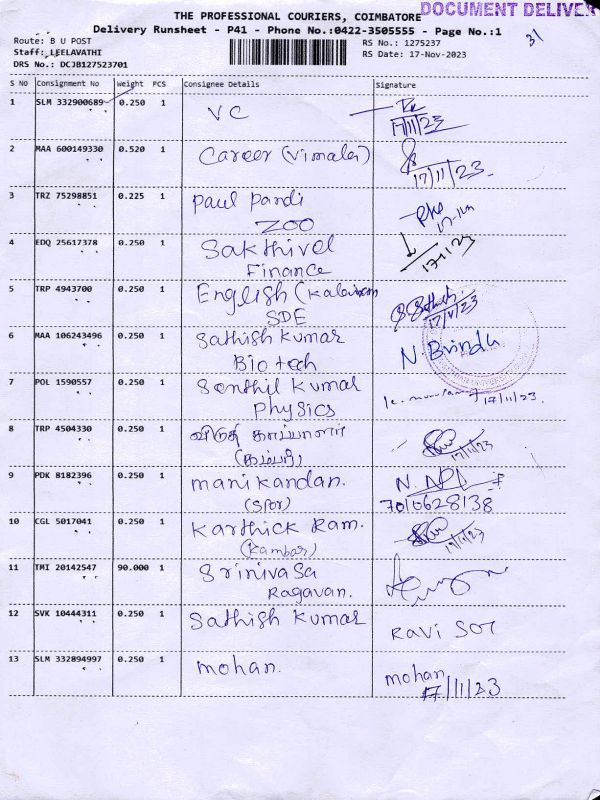 THE PROFESSIONAL COURIERS, COIMBATORE
DOCUMENT DELIVER
Delivery Runsheet - P41 - Phone No.:0422-3505555 - Page No.:1
31
Route: B U POST
RS No.: 1275237
Staff: LEELAVATHI
RS Date: 17-Nov-2023
DRS No.: DCJB127523701
S No Consignment No Weight PCS Consignee Details Signature
1 SLM 332900689 0.250 1 VC 17/11/23
2 MAA 600149330 0.520 1 Career (Vimala) 17/11/23.
3 TRZ 75298851 0.225 1 Paul Pandi
ZOO
4 EDQ 25617378 0.250 1 Sakthivel
Finance
5 TRP 4943700 0.250 1 English (
SDE
6 MAA 106243496 0.250 1 Sathish Kumar N. Brinda
Bio tech
7 POL 1590557 0.250 1 Senthil Kumar 17/11/23.
Physics
8 TRP 4504330 0.250 1 விடுதி காப்பாளர் 17/11/23
9 PDK 8182396 0.250 1 manikandan.
7010628138
10 CGL 5017041 0.250 1 Karthick Ram.
(Kambar)
11 TMI 20142547 90.000 1 Srinivasa
Ragavan.
12 SVK 10444311 0.250 1 Sathish Kumar Ravi
13 SLM 332894997 0.250 1 mohan. mohan
17/11/23